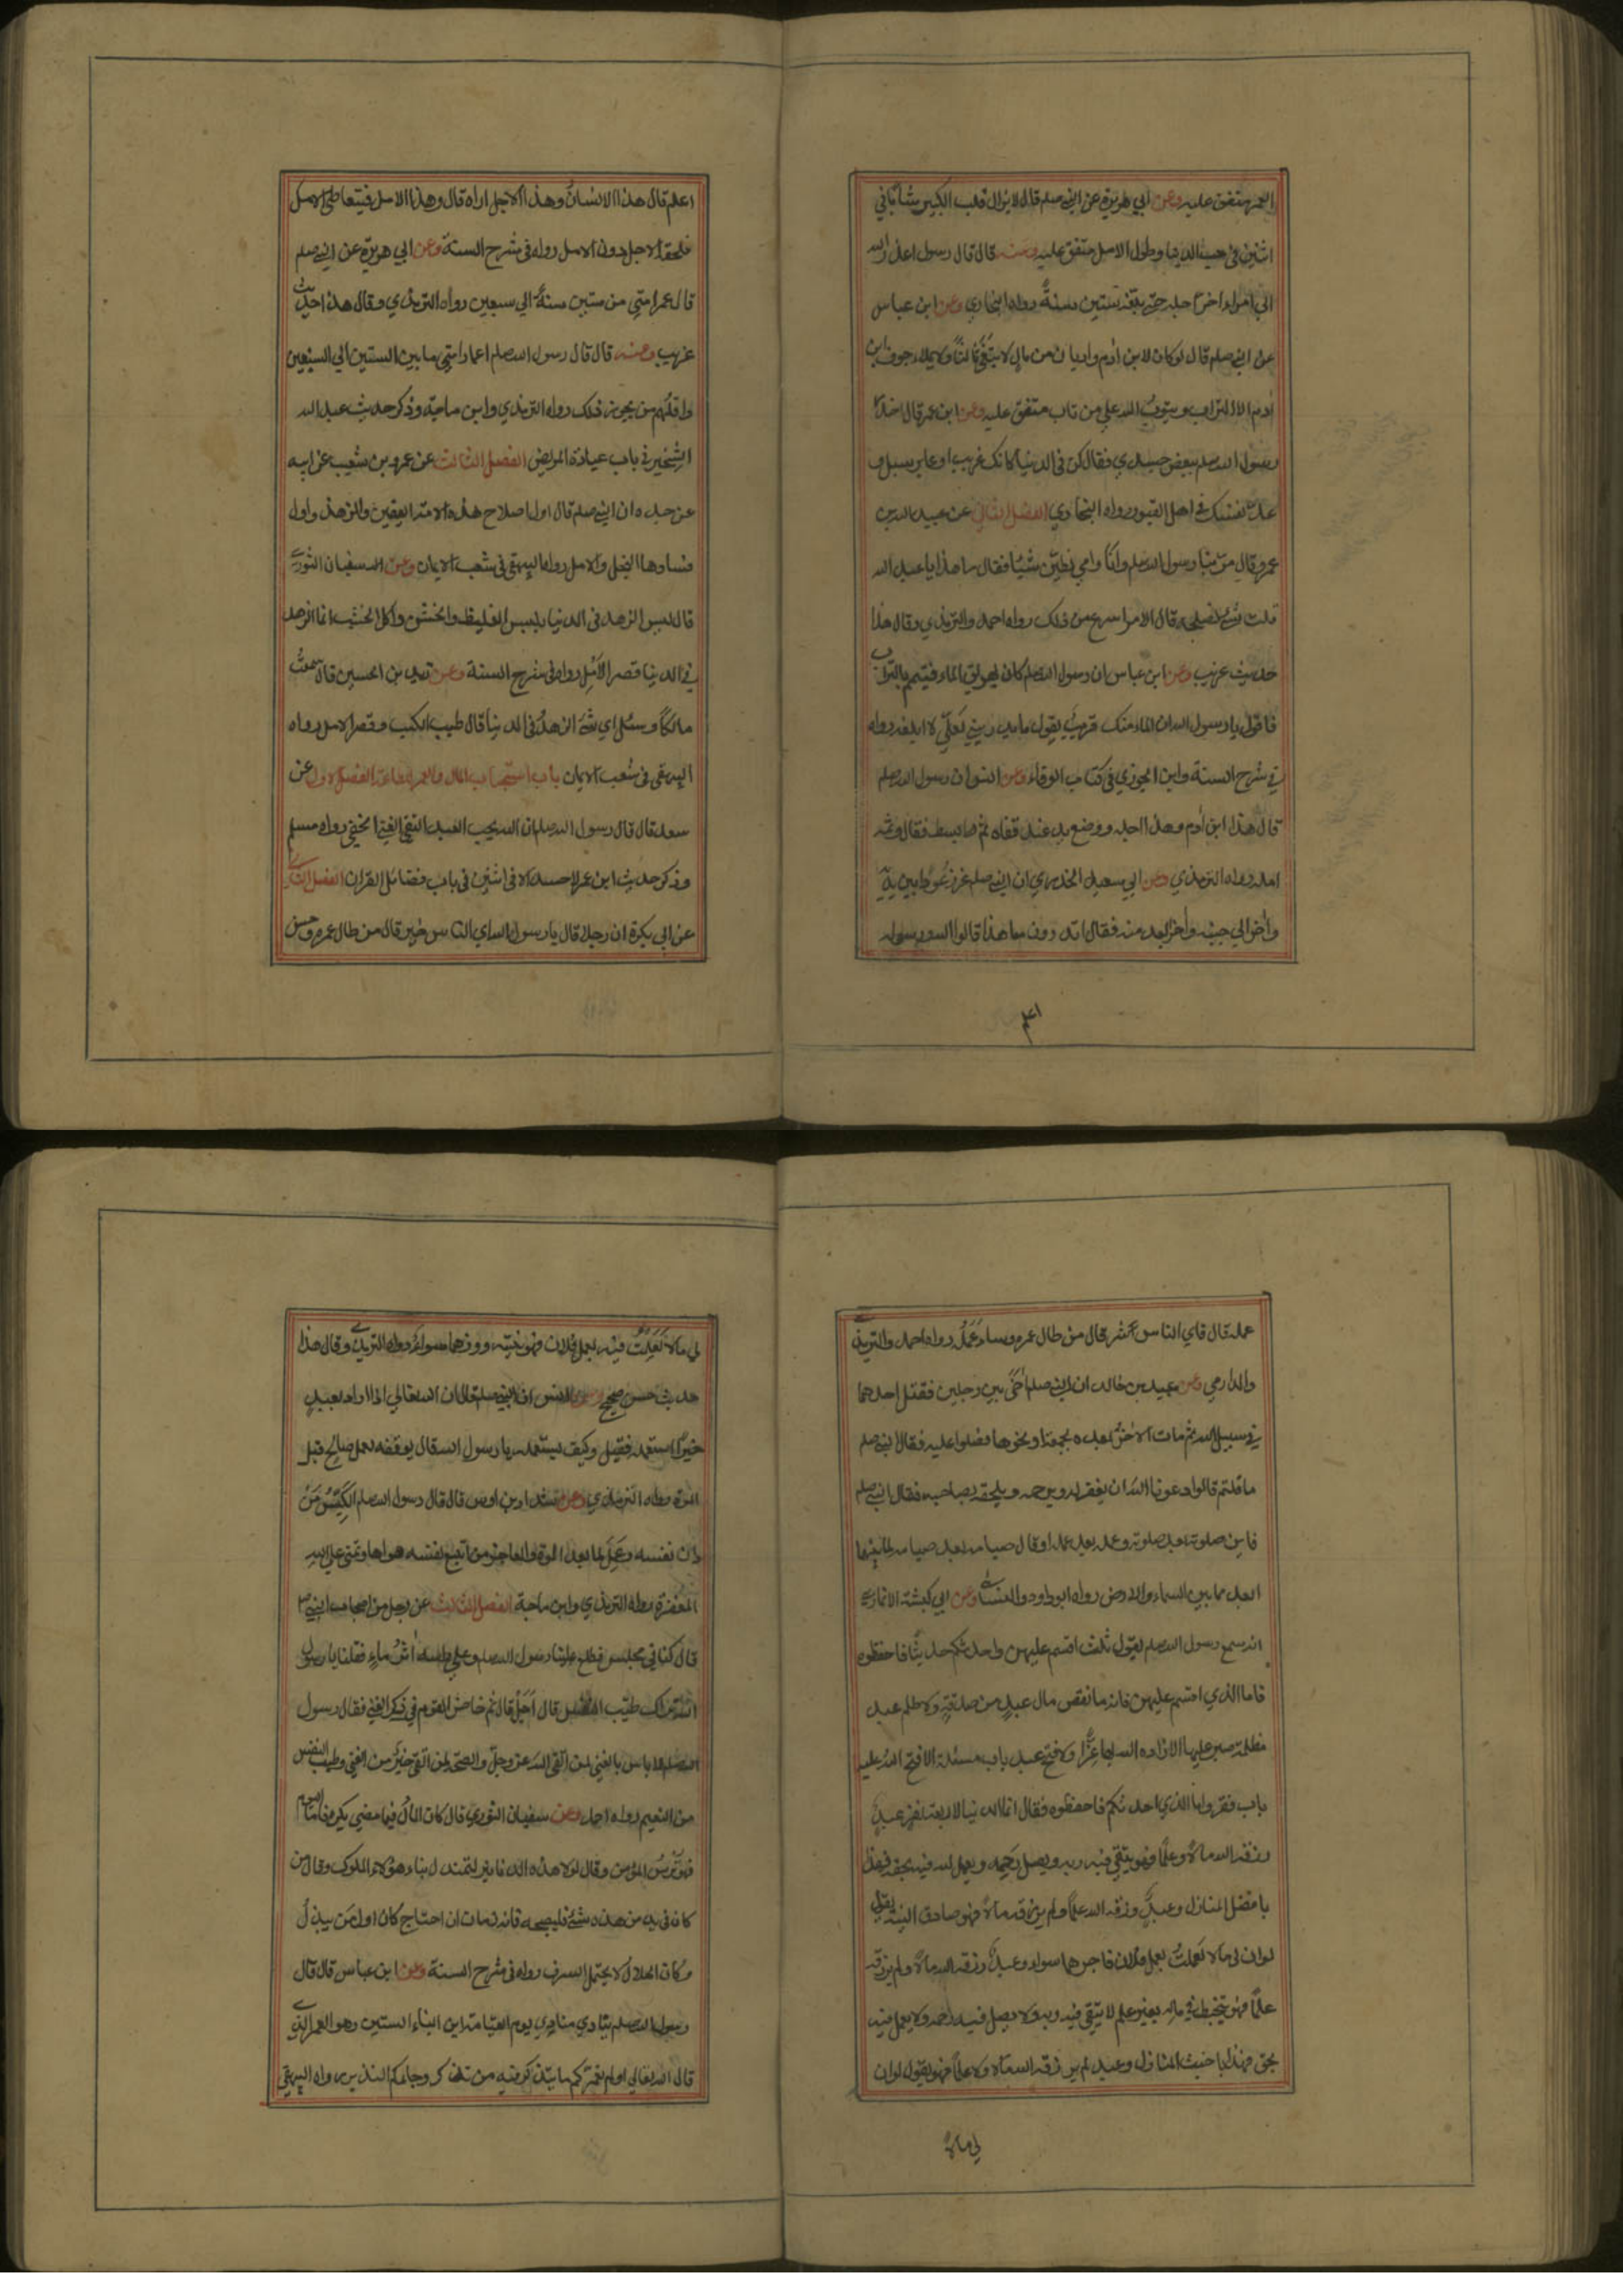 العمر متفق عليه وعن ابي هريرة عن النبي صلم قال لا يزال قلب الكبير شابا في
اثنين في حب الدنيا وطول الامل متفق عليه وعنه قال قال رسول اعذر الله
الي امرء اخر اجله حتى بلغه ستين سنةً رواه البخاري وعن ابن عباس
عن النبي صلم قال لو كان لابن ادم واديان من مال لابتغى ثالثًا ولا يملاء جوف ابن
ادم الا التراب ويتوب الله علي من تاب متفق عليه وعن ابن عمر قال اخذ
رسول الله صلم ببعض جسدي فقال كن في الدنيا كانك غريب او عابر سبيل و
عدّ نفسك في اهل القبور رواه البخاري الفصل الثاني عن عبد الله بن
عمرو قال مرّ بنا رسول الله صلم وانا وامي نطيّن شيئا فقال ما هذا يا عبد الله
قلت شئ نصلحه قال الامر اسرع من ذلك رواه احمد والترمذي وقال هذا
حديث غريب وعن ابن عباس ان رسول الله صلم كان يهريق الماء فيتيمم بالتراب
فاقول يا رسول الله ان الماء منك قريب يقول ما يدريني لعلّي لا ابلغه رواه
في شرح السنة وابن الجوزي في كتاب الوفاء وعن انس ان رسول الله صلم
قال هذا ابن ادم وهذا اجله ووضع يده عند قفاه ثم بسط فقال وثمه
امله رواه الترمذي وعن ابي سعيد الخدري ان النبي صلم غرز عودا بين يديه
واخر الي جنبه واخر ابعد منه فقال اتدرون ما هذا قالوا الله ورسوله
اعلم قال هذا الانسان وهذا الاجل اراه قال وهذا الامل فيتعاطى الامل
فلحقه الاجل دون الامل رواه في شرح السنة وعن ابي هريرة عن النبي صلم
قال عمر امتي من ستين سنةً الي سبعين رواه الترمذي وقال هذا حديث
غريب وعنه قال قال رسول الله صلم اعمار امتي ما بين الستين الي السبعين
واقلهم من يجوز ذلك رواه الترمذي وابن ماجة وذكر حديث عبد الله
الشخير في باب عيادة المريض الفصل الثالث عن عمرو بن شعيب عن ابيه
عن جده ان النبي صلم قال اول صلاح هذه الامة اليقين والزهد واول
فسادها البخل والامل رواه البيهقي في شعب الايمان وعن سفيان الثوري
قال ليس الزهد في الدنيا بلبس الغليظ والخشن واكل الخشب انما الزهد
في الدنيا قصر الامل رواه في شرح السنة وعن زيد بن الحسين قال سمعت
مالكًا وسئل اي شئ الزهد في الدنيا قال طيب الكسب وقصر الامل رواه
البيهقي في شعب الايمان باب استحباب المال والعمر للطاعة الفصل الاول عن
سعد قال قال رسول الله صلم ان الله يحب العبد التقي الغني الخفي رواه مسلم
وذكر حديث ابن عمر لا حسد الا في اثنين في باب فضائل القران الفصل الثاني
عن ابي بكرة ان رجلا قال يا رسول الله اي الناس خير قال من طال عمره وحسن
عمله قال فاي الناس شر قال من طال عمره وساء عمله رواه احمد والترمذي
والدارمي وعن عبيد بن خالد ان النبي صلم اخى بين رجلين فقتل احدهما
في سبيل الله ثم مات الاخر بعده بجمعة او نحوها فصلوا عليه فقال النبي صلم
ما قلتم قالوا دعونا الله ان يغفر له ويرحمه ويلحقه بصاحبه فقال النبي صلم
فاين صلوته بعد صلوته وعمله بعد عمله او قال صيامه بعد صيامه لما بينهما
ابعد مما بين السماء والارض رواه ابو داود والنسائي وعن ابي كبشة الانماري
انه سمع رسول الله صلم يقول ثلث اقسم عليهن واحدثكم حديثًا فاحفظوه
فاما الذي اقسم عليهن فانه ما نقص مال عبد من صدقة ولا ظلم عبد
مظلمة صبر عليها الا زاده الله بها عزّا ولا فتح عبد باب مسئلة الا فتح الله عليه
باب فقر واما الذي احدثكم فاحفظوه فقال انما الدنيا لاربعة نفر عبد
رزقه الله مالا وعلما فهو يتقي فيه ربه ويصل رحمه ويعمل لله فيه بحقه فهذا
بافضل المنازل وعبد رزقه الله علما ولم يرزقه مالا فهو صادق النية يقول
لو ان لي مالا لعملت بعمل فلان فاجرهما سواء وعبد رزقه الله مالا ولم يرزقه
علما فهو يتخبط في ماله بغير علم لا يتقي فيه ربه ولا يصل فيه رحمه ولا يعمل فيه
بحق فهذا باخبث المنازل وعبد لم يرزقه الله مالا ولا علما فهو يقول لو ان
لي مالا
لي مالا لعملت فيه بعمل فلان فهو نيته ووزرهما سواء رواه الترمذي وقال هذا
حديث حسن صحيح وعن انس ان النبي صلم قال ان الله تعالي اذا اراد بعبد
خيرًا استعمله فقيل وكيف يستعمله يا رسول الله قال يوفقه لعمل صالح قبل
الموت رواه الترمذي وعن شداد بن اوس قال قال رسول الله صلم الكيّس من
دان نفسه وعمل لما بعد الموت والعاجز من اتبع نفسه هواها وتمنى على الله
المغفرة رواه الترمذي وابن ماجة الفصل الثالث عن رجل من اصحاب النبي
قال كنا في مجلس فطلع علينا رسول الله صلم وعلى راسه اثر ماء فقلنا يا رسول
الله نراك طيب النفس قال اجل قال ثم خاض القوم في ذكر الغنى فقال رسول
الله صلم لا باس بالغنى لمن اتقى الله عز وجل والصحة لمن اتقى خير من الغنى وطيب النفس
من النعيم رواه احمد وعن سفيان الثوري قال كان المال فيما مضى يكره فاما اليوم
فهو ترس المؤمن وقال لولا هذه الدنانير لتمندل بنا هؤلاء الملوك وقال من
كان في يده من هذه شئ فليصلحه فانه زمان ان احتاج كان اول من يبذل
وكان الحلال لا يحتمل السرف رواه في شرح السنة وعن ابن عباس قال قال
رسول الله صلم ينادي منادي يوم القيامة اين ابناء الستين وهو العمر الذي
قال الله تعالي اولم نعمركم ما يتذكر فيه من تذكر وجاءكم النذير رواه البيهقي